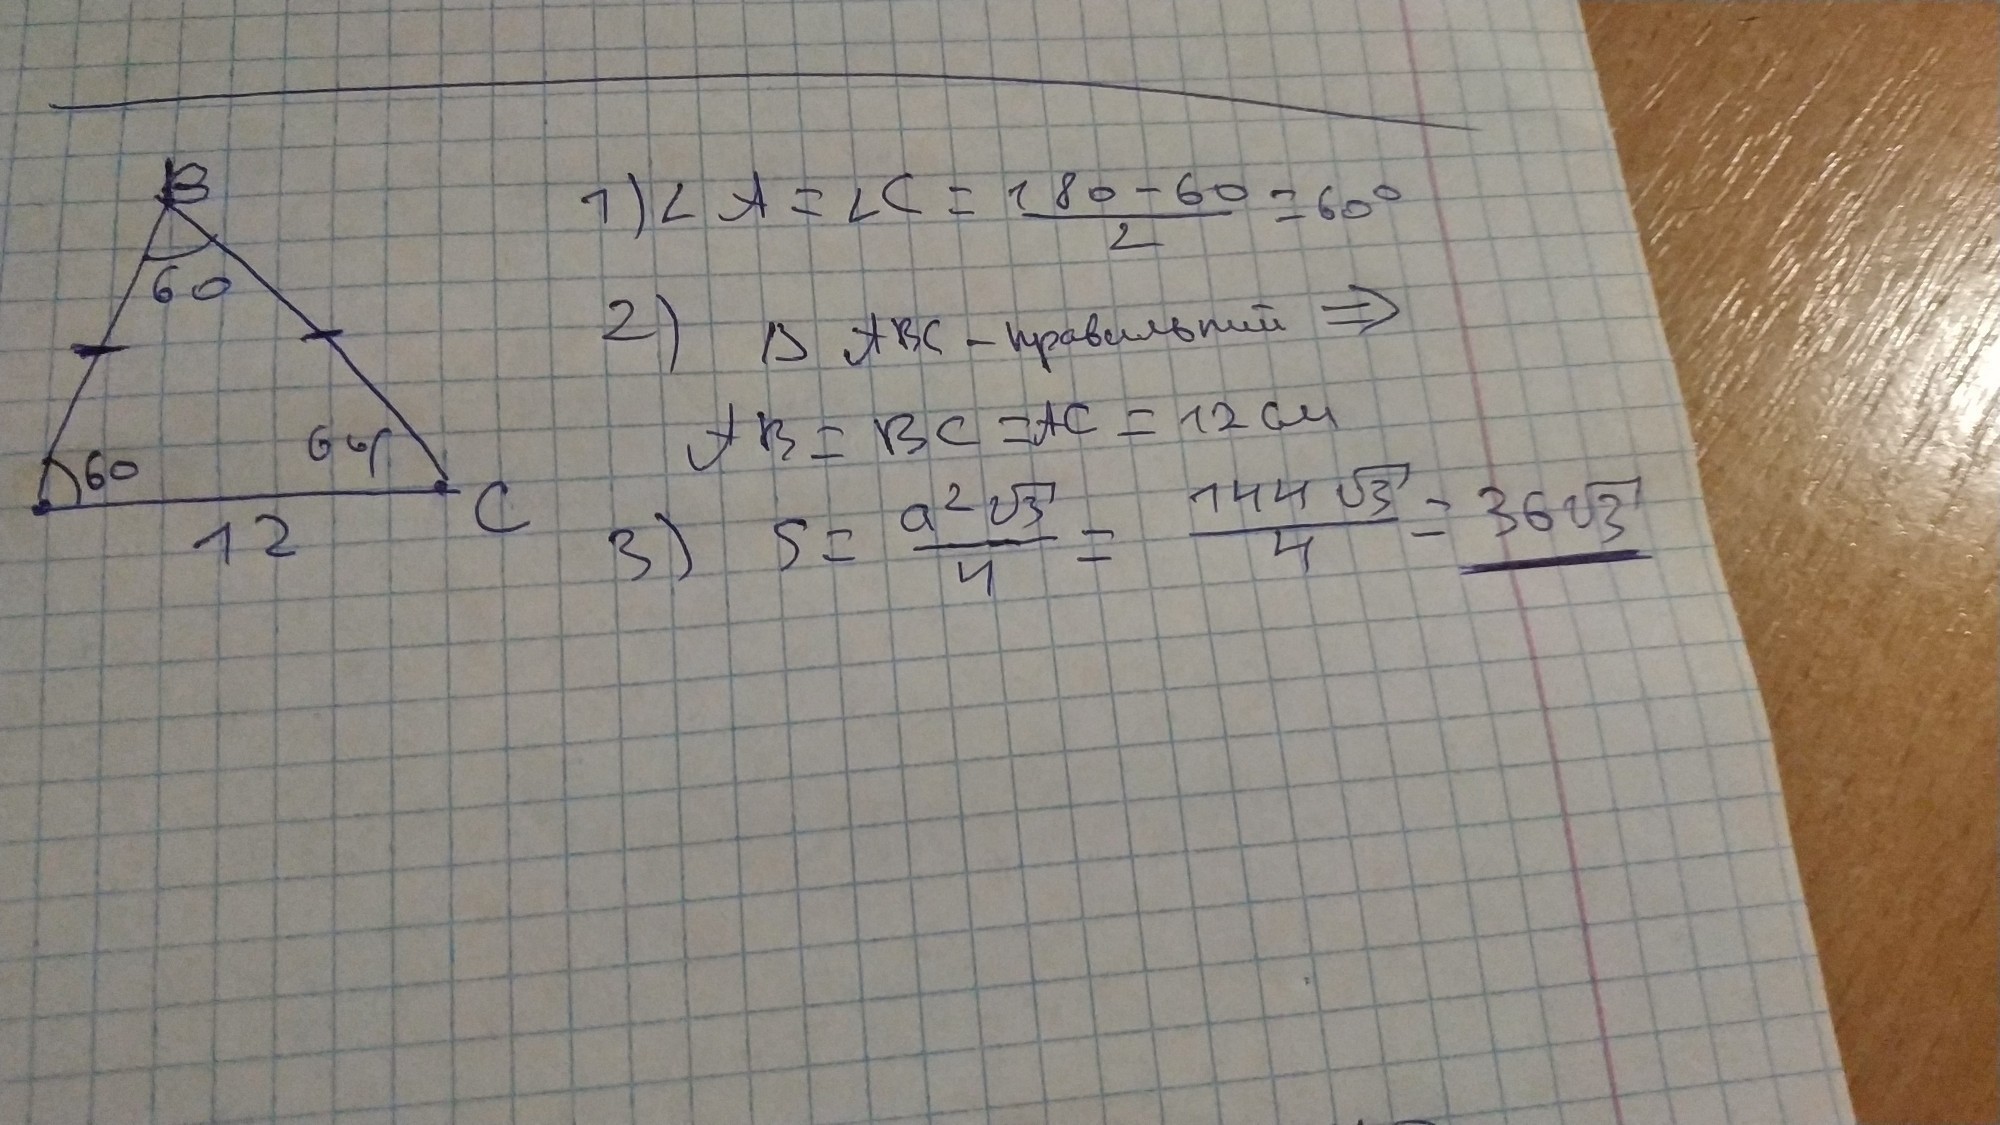 B
60
60
60
12
C
1) ∠A = ∠C = (180 - 60)/2 = 60°
2) В ABC - правильний ⇒
AB = BC = AC = 12 см
3) S = a²√3/4 = 144√3/4 = 36√3